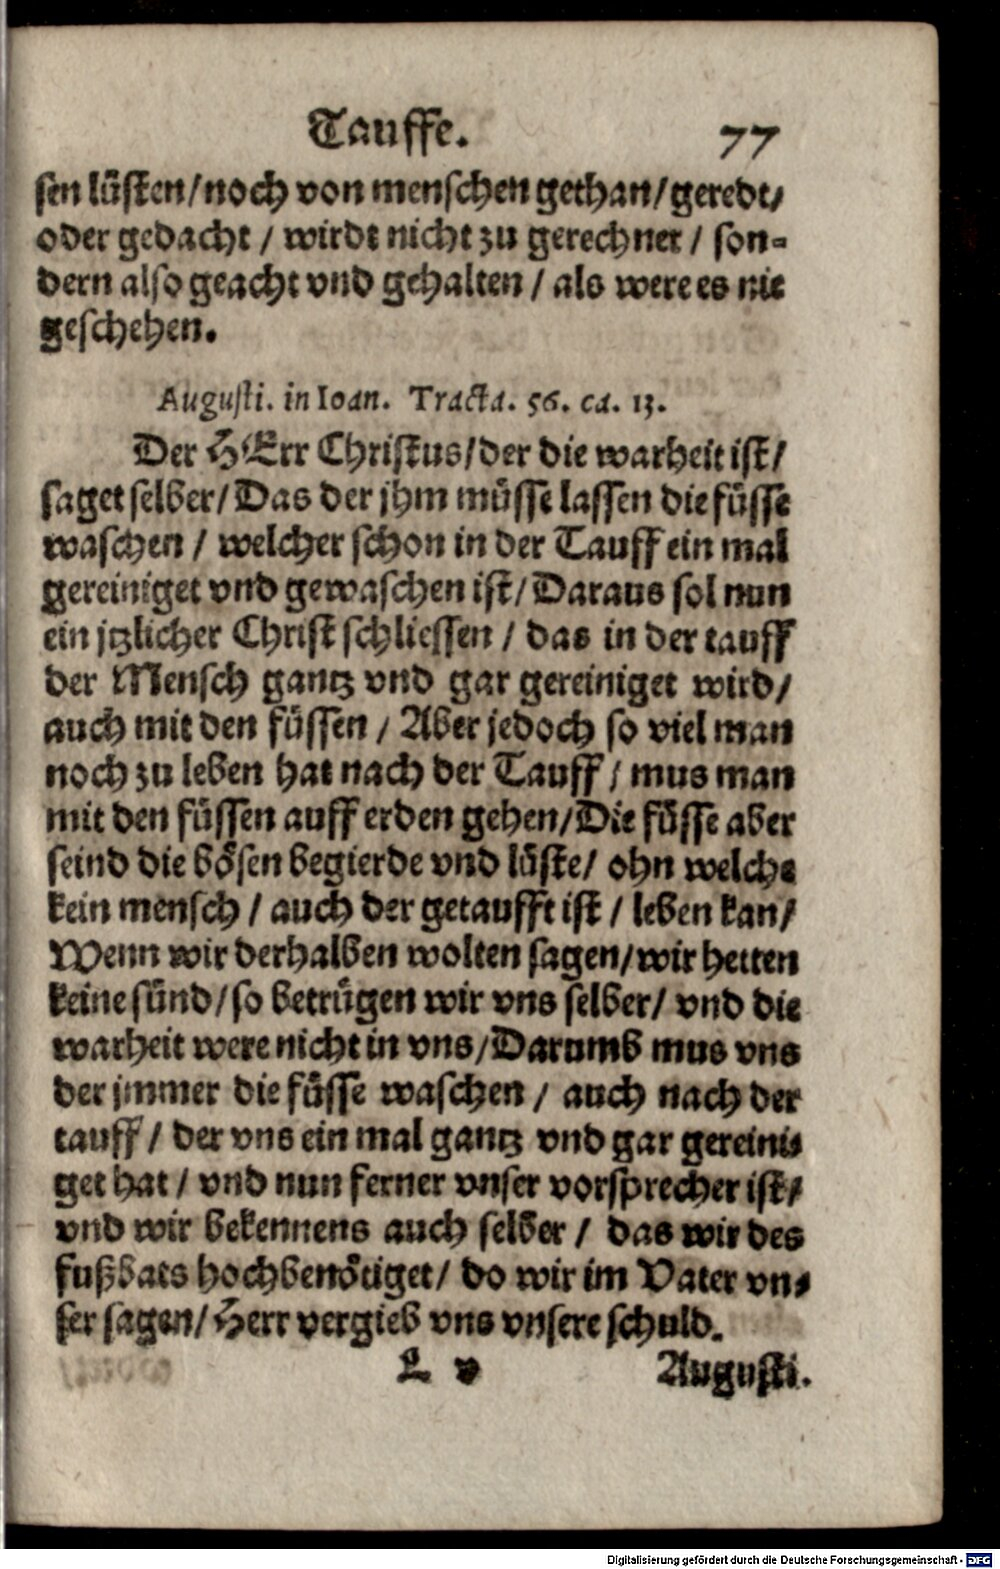 Tauffe. 77
sen lüsten/noch von menschen gethan/geredt/
oder gedacht / wirdt nicht zu gerechnet / son-
dern also geacht vnd gehalten / als were es nie
geschehen.
Augusti. in Ioan. Tracta. 56. ca. 13.
Der HErr Christus/der die warheit ist/
saget selber/Das der jhm müsse lassen die füsse
waschen / welcher schon in der Tauff ein mal
gereiniget vnd gewaschen ist/Daraus sol nun
ein jtzlicher Christ schliessen / das in der tauff
der Mensch gantz vnd gar gereiniget wird/
auch mit den füssen / Aber jedoch so viel man
noch zu leben hat nach der Tauff / mus man
mit den füssen auff erden gehen/Die füsse aber
seind die bösen begierde vnd lüste/ ohn welche
kein mensch / auch der getaufft ist / leben kan/
Wenn wir derhalben wolten sagen/wir hetten
keine sünd/so betrügen wir vns selber/ vnd die
warheit were nicht in vns/Darumb mus vns
der jmmer die füsse waschen / auch nach der
tauff / der vns ein mal gantz vnd gar gereini-
get hat / vnd nun ferner vnser vorsprecher ist/
vnd wir bekennens auch selber / das wir des
fußbats hochbenötiget/ do wir im Vater vn-
ser sagen/Herr vergieb vns vnsere schuld.
L v Augusti.
Digitalisierung gefördert durch die Deutsche Forschungsgemeinschaft - DFG